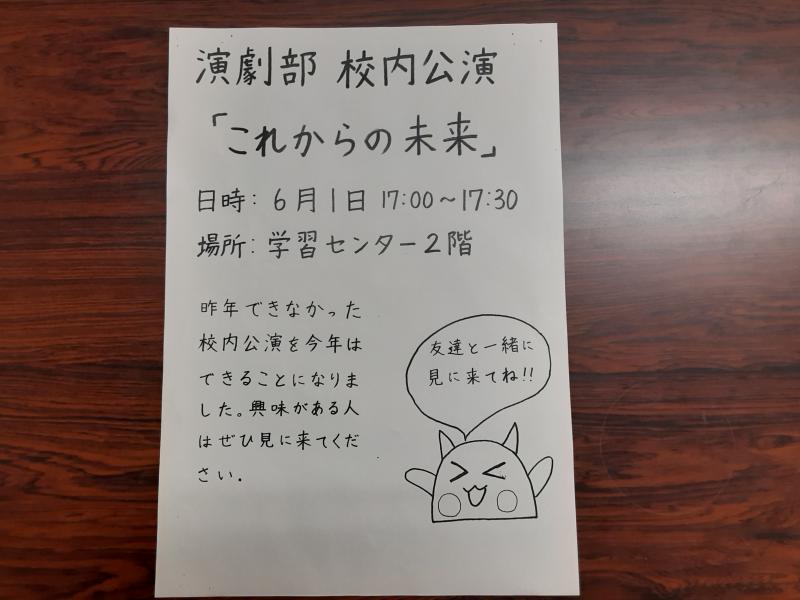 演劇部 校内公演
「これからの未来」
日時: 6月1日 17:00〜17:30
場所: 学習センター2階
昨年できなかった
校内公演を今年は
できることになりま
した。興味がある人
はぜひ見に来てくだ
さい.
友達と一緒に
見に来てね!!